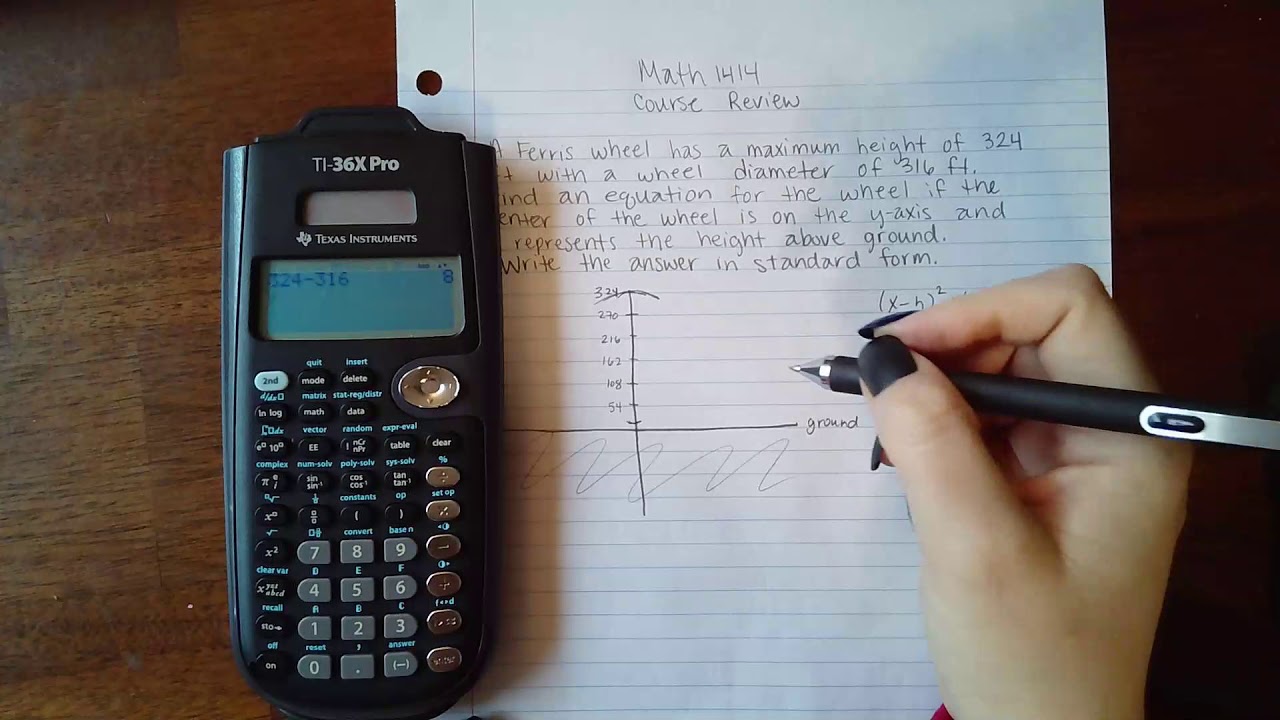 Math 1414
Course Review
Ferris wheel has a maximum height of 324
with a wheel diameter of 316 ft.
an equation for the wheel if the
of the wheel is on the y-axis and
represents the height above ground.
Write the answer in standard form.
324
270
216
162
108
54
ground
(x-h)²
TI-36X Pro
TEXAS INSTRUMENTS
324-316 8
quit insert
2nd mode delete
matrix stat-reg/distr
ln log math data
vector random expr-eval
EE nCr nPr table clear
complex num-solv poly-solv sys-solv %
π sin sin⁻¹ cos cos⁻¹ tan tan⁻¹ ÷
constants op set op
( )
convert base n
x² 7 8 9 −
clear var D E F
4 5 6 +
recall A B C
sto→ 1 2 3
off reset , answer
on 0 . (−) enter